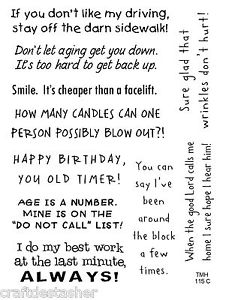 If you don't like my driving,
stay off the darn sidewalk!
Don't let aging get you down.
It's too hard to get back up.
Smile. It's cheaper than a facelift.
HOW MANY CANDLES CAN ONE
PERSON POSSIBLY BLOW OUT?!
HAPPY BIRTHDAY,
YOU OLD TIMER!
AGE IS A NUMBER.
MINE IS ON THE
"DO NOT CALL" LIST!
I do my best work
at the last minute,
ALWAYS!
You can
say I've
been
around
the block
a few
times.
Sure glad that
wrinkles don't hurt!
When the good Lord calls me
home I sure hope I hear him!
TMH
115 C
craftdestasher